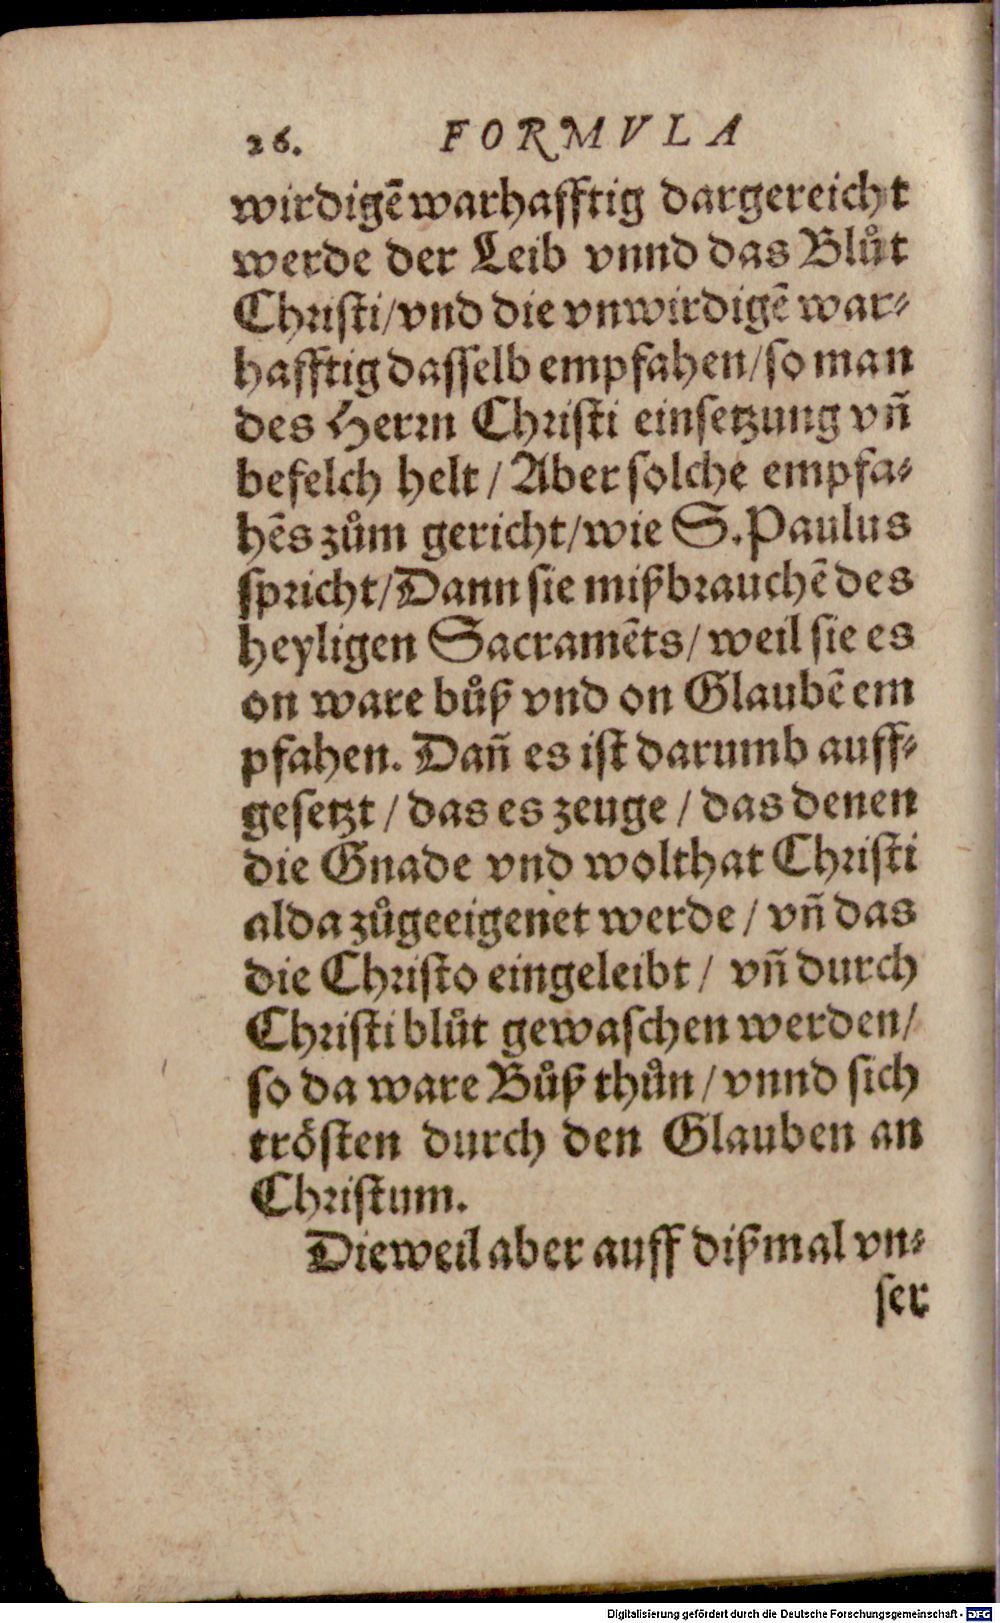 26. FORMVLA
wirdigẽ warhafftig dargereicht
werde der Leib vnnd das Blůt
Christi/vnd die vnwirdigẽ war⸗
hafftig dasselb empfahen/so man
des Herrn Christi einsetzung vñ
befelch helt / Aber solche empfa⸗
hẽs zům gericht/wie S. Paulus
spricht/Dann sie mißbrauchẽ des
heyligen Sacramẽts/ weil sie es
on ware bůß vnd on Glaubẽ em
pfahen. Dañ es ist darumb auff⸗
gesetzt / das es zeuge / das denen
die Gnade vnd wolthat Christi
alda zůgeeigenet werde / vñ das
die Christo eingeleibt / vñ durch
Christi blůt gewaschen werden/
so da ware Bůß thůn / vnnd sich
trösten durch den Glauben an
Christum.
Dieweil aber auff dißmal vn⸗
ser
Digitalisierung gefördert durch die Deutsche Forschungsgemeinschaft - DFG